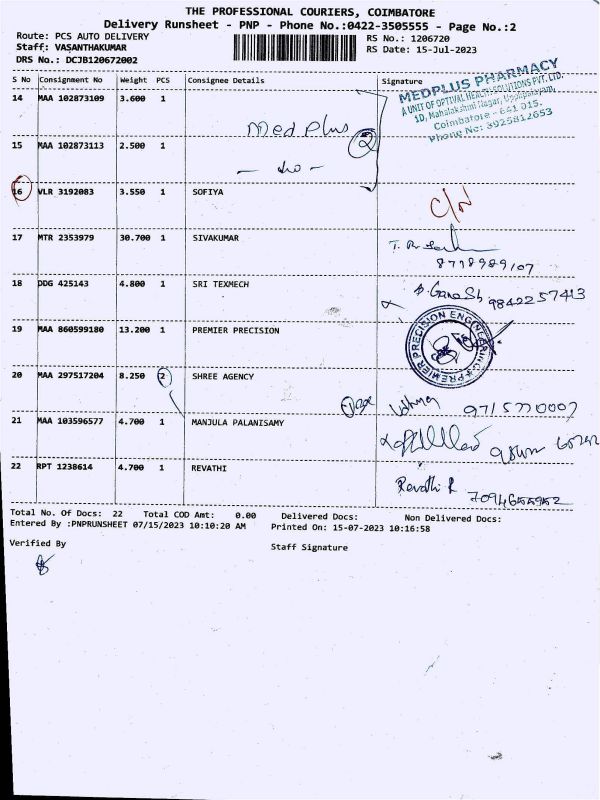 THE PROFESSIONAL COURIERS, COIMBATORE
Delivery Runsheet - PNP - Phone No.:0422-3505555 - Page No.:2
Route: PCS AUTO DELIVERY
RS No.: 1206720
Staff: VASANTHAKUMAR
RS Date: 15-Jul-2023
DRS No.: DCJB120672002
S No Consignment No Weight PCS Consignee Details Signature
MEDPLUS PHARMACY
A UNIT OF OPTIVAL HEALTH SOLUTIONS PVT. LTD.
1D, Mahalakshmi Nagar, Uppilipalayam,
Coimbatore - 641 015.
Phone No: 8925812653
14 MAA 102873109 3.600 1
Med Plus 2
15 MAA 102873113 2.500 1
- do -
16 VLR 3192083 3.550 1 SOFIYA
C/N
17 MTR 2353979 30.700 1 SIVAKUMAR
8718989107
18 DDG 425143 4.800 1 SRI TEXMECH
Ganesh 9842257413
19 MAA 860599180 13.200 1 PREMIER PRECISION
PREMIER PRECISION ENGINEERING
20 MAA 297517204 8.250 2 SHREE AGENCY
9715770007
21 MAA 103596577 4.700 1 MANJULA PALANISAMY
22 RPT 1238614 4.700 1 REVATHI
Revathi R
7094655952
Total No. Of Docs: 22 Total COD Amt: 0.00 Delivered Docs: Non Delivered Docs:
Entered By :PNPRUNSHEET 07/15/2023 10:10:20 AM Printed On: 15-07-2023 10:16:58
Verified By
Staff Signature